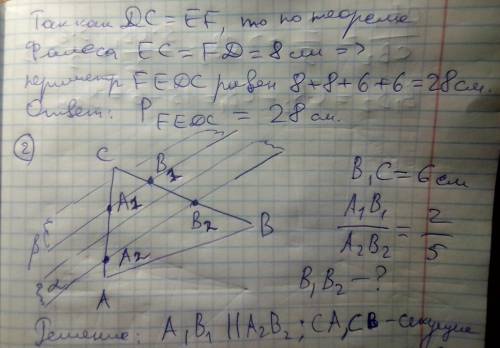 Так как DC = EF, то по теореме
Фалеса EC = FD = 8 см =>
периметр FEDC равен 8+8+6+6=28см.
Ответ: P FEDC = 28 см.
2
C
B1
A1
B2
B
A2
A
β
α
B1C = 6 см
A1B1
A2B2
=
2
5
B1B2 - ?
Решение: A1B1 || A2B2; CA, CB - секущие